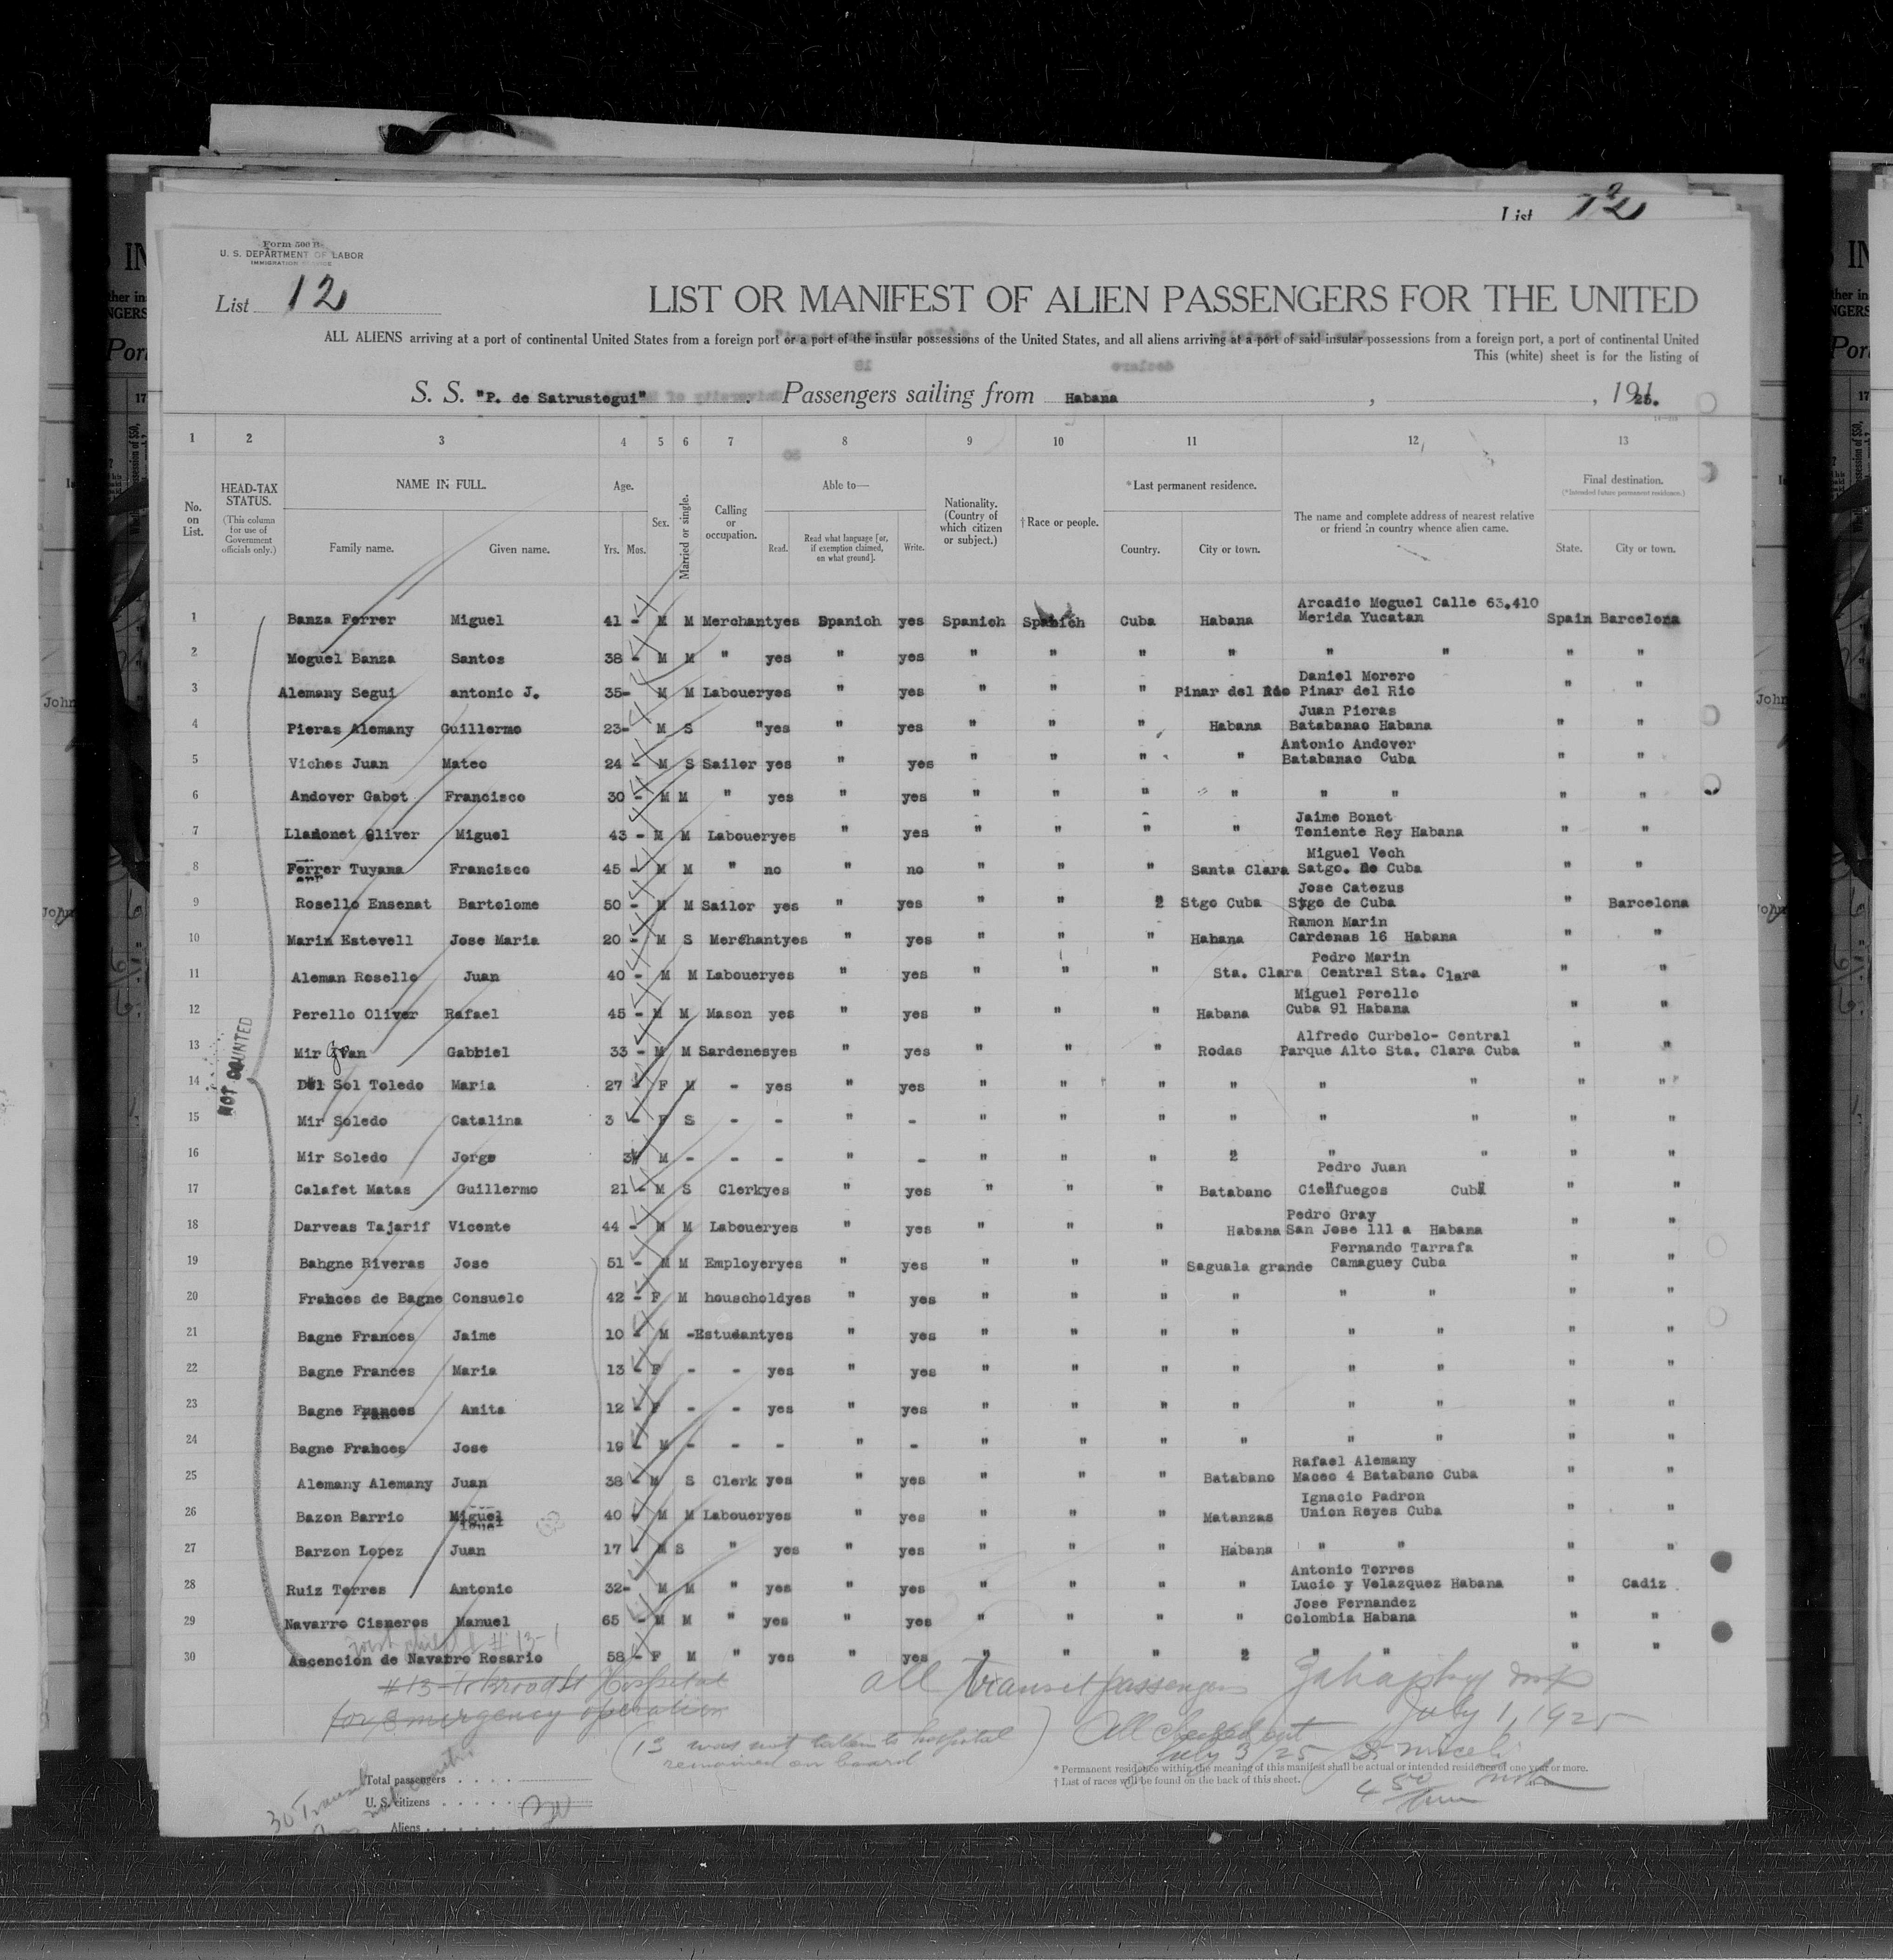 List 12
Form 500 B
U. S. DEPARTMENT OF LABOR
IMMIGRATION SERVICE
List 12
LIST OR MANIFEST OF ALIEN PASSENGERS FOR THE UNITED
ALL ALIENS arriving at a port of continental United States from a foreign port or a port of the insular possessions of the United States, and all aliens arriving at a port of said insular possessions from a foreign port, a port of continental United
This (white) sheet is for the listing of
S. S. "P. de Satrustegui" . Passengers sailing from Habana , , 19
1 2 3 4 5 6 7 8 9 10 11 12 13
No. on List.
HEAD-TAX STATUS.
(This column for use of Government officials only.)
NAME IN FULL.
Family name. Given name.
Age.
Yrs. Mos.
Sex.
Married or single.
Calling or occupation.
Able to—
Read. Read what language [or, if exemption claimed, on what ground]. Write.
Nationality. (Country of which citizen or subject.)
† Race or people.
*Last permanent residence.
Country. City or town.
The name and complete address of nearest relative or friend in country whence alien came.
Final destination.
(*Intended future permanent residence.)
State. City or town.
Arcadio Moguel Calle 63.410
1 Banza Ferrer Miguel 41 - M M Merchant yes Spanich yes Spanich Spanich Cuba Habana Merida Yucatan Spain Barcelona
2 Moguel Banza Santos 38 - M M " yes " yes " " " " " " " "
Daniel Morero
3 Alemany Segui antonio J. 35- M M Labouer yes " yes " " " Pinar del Rio Pinar del Rio " "
Juan Pieras
4 Pieras Alemany Guillermo 23- M S " yes " yes " " " Habana Batabanao Habana " "
Antonio Andover
5 Viches Juan Mateo 24 - M S Sailor yes " yes " " " " Batabanao Cuba " "
6 Andover Gabot Francisco 30 - M M " yes " yes " " " " " " " "
Jaime Bonet
7 Lladonet Oliver Miguel 43 - M M Labouer yes " yes " " " " Teniente Rey Habana " "
Miguel Vech
8 Ferrer Tuyama Francisco 45 - M M " no " no " " " Santa Clara Satgo. De Cuba " "
Jose Catezus
9 Rosello Ensenat Bartolome 50 - M M Sailor yes " yes " " 2 Stgo Cuba Stgo de Cuba " Barcelona
Ramon Marin
10 Marin Estevell Jose Maria 20 - M S Merchant yes " yes " " " Habana Cardenas 16 Habana " "
Pedro Marin
11 Aleman Rosello Juan 40 - M M Labouer yes " yes " " " Sta. Clara Central Sta. Clara " "
Miguel Perello
12 Perello Oliver Rafael 45 - M M Mason yes " yes " " " Habana Cuba 91 Habana " "
Alfredo Curbelo- Central
13 Mir Gabbiel 33 - M M Sardenes yes " yes " " " Rodas Parque Alto Sta. Clara Cuba " "
14 Del Sol Toledo Maria 27 - F M - yes " yes " " " " " " " "
15 Mir Soledo Catalina 3 - F S - - " - " " " " " " " "
16 Mir Soledo Jorge 3 M - - - " - " " " 2 " " " "
Pedro Juan
17 Calafet Matas Guillermo 21 - M S Clerk yes " yes " " " Batabano Cienfuegos Cuba " "
Pedro Gray
18 Darveas Tajarif Vicente 44 - M M Labouer yes " yes " " " Habana San Jose 111 a Habana " "
Fernando Tarrafa
19 Bahgne Riveras Jose 51 - M M Employer yes " yes " " " Saguala grande Camaguey Cuba " "
20 Frances de Bagne Consuelo 42 - F M household yes " yes " " " " " " " "
21 Bagne Frances Jaime 10 - M - Estudant yes " yes " " " " " " " "
22 Bagne Frances Maria 13 - F - - yes " yes " " " " " " " "
23 Bagne Frances Anita 12 - F - - yes " yes " " " " " " " "
24 Bagne Frances Jose 19 - M - - - " - " " " " " " " "
Rafael Alemany
25 Alemany Alemany Juan 38 - M S Clerk yes " yes " " " Batabano Maceo 4 Batabano Cuba " "
Ignacio Padron
26 Bazon Barrio Miguel 40 - M M Labouer yes " yes " " " Matanzas Union Reyes Cuba " "
27 Barzon Lopez Juan 17 - M S " yes " yes " " " Habana " " " "
Antonio Torres
28 Ruiz Torres Antonio 32- M M " yes " yes " " " " Lucio y Velazquez Habana " Cadiz
Jose Fernandez
29 Navarro Cisneros Manuel 65 - M M " yes " yes " " " " Colombia Habana " "
30 Ascencion de Navarro Rosario 58 - F M " yes " yes " " " 2 " " " "
NOT COUNTED
#13 to Broad St Hospital
for Emergency operation
(13 was not taken to hospital
remained on board)
all transit passengers
July 1, 1925
All checked out
July 3/25
* Permanent residence within the meaning of this manifest shall be actual or intended residence of one year or more.
† List of races will be found on the back of this sheet.
Total passengers
U. S. citizens
Aliens
30
30 Transit